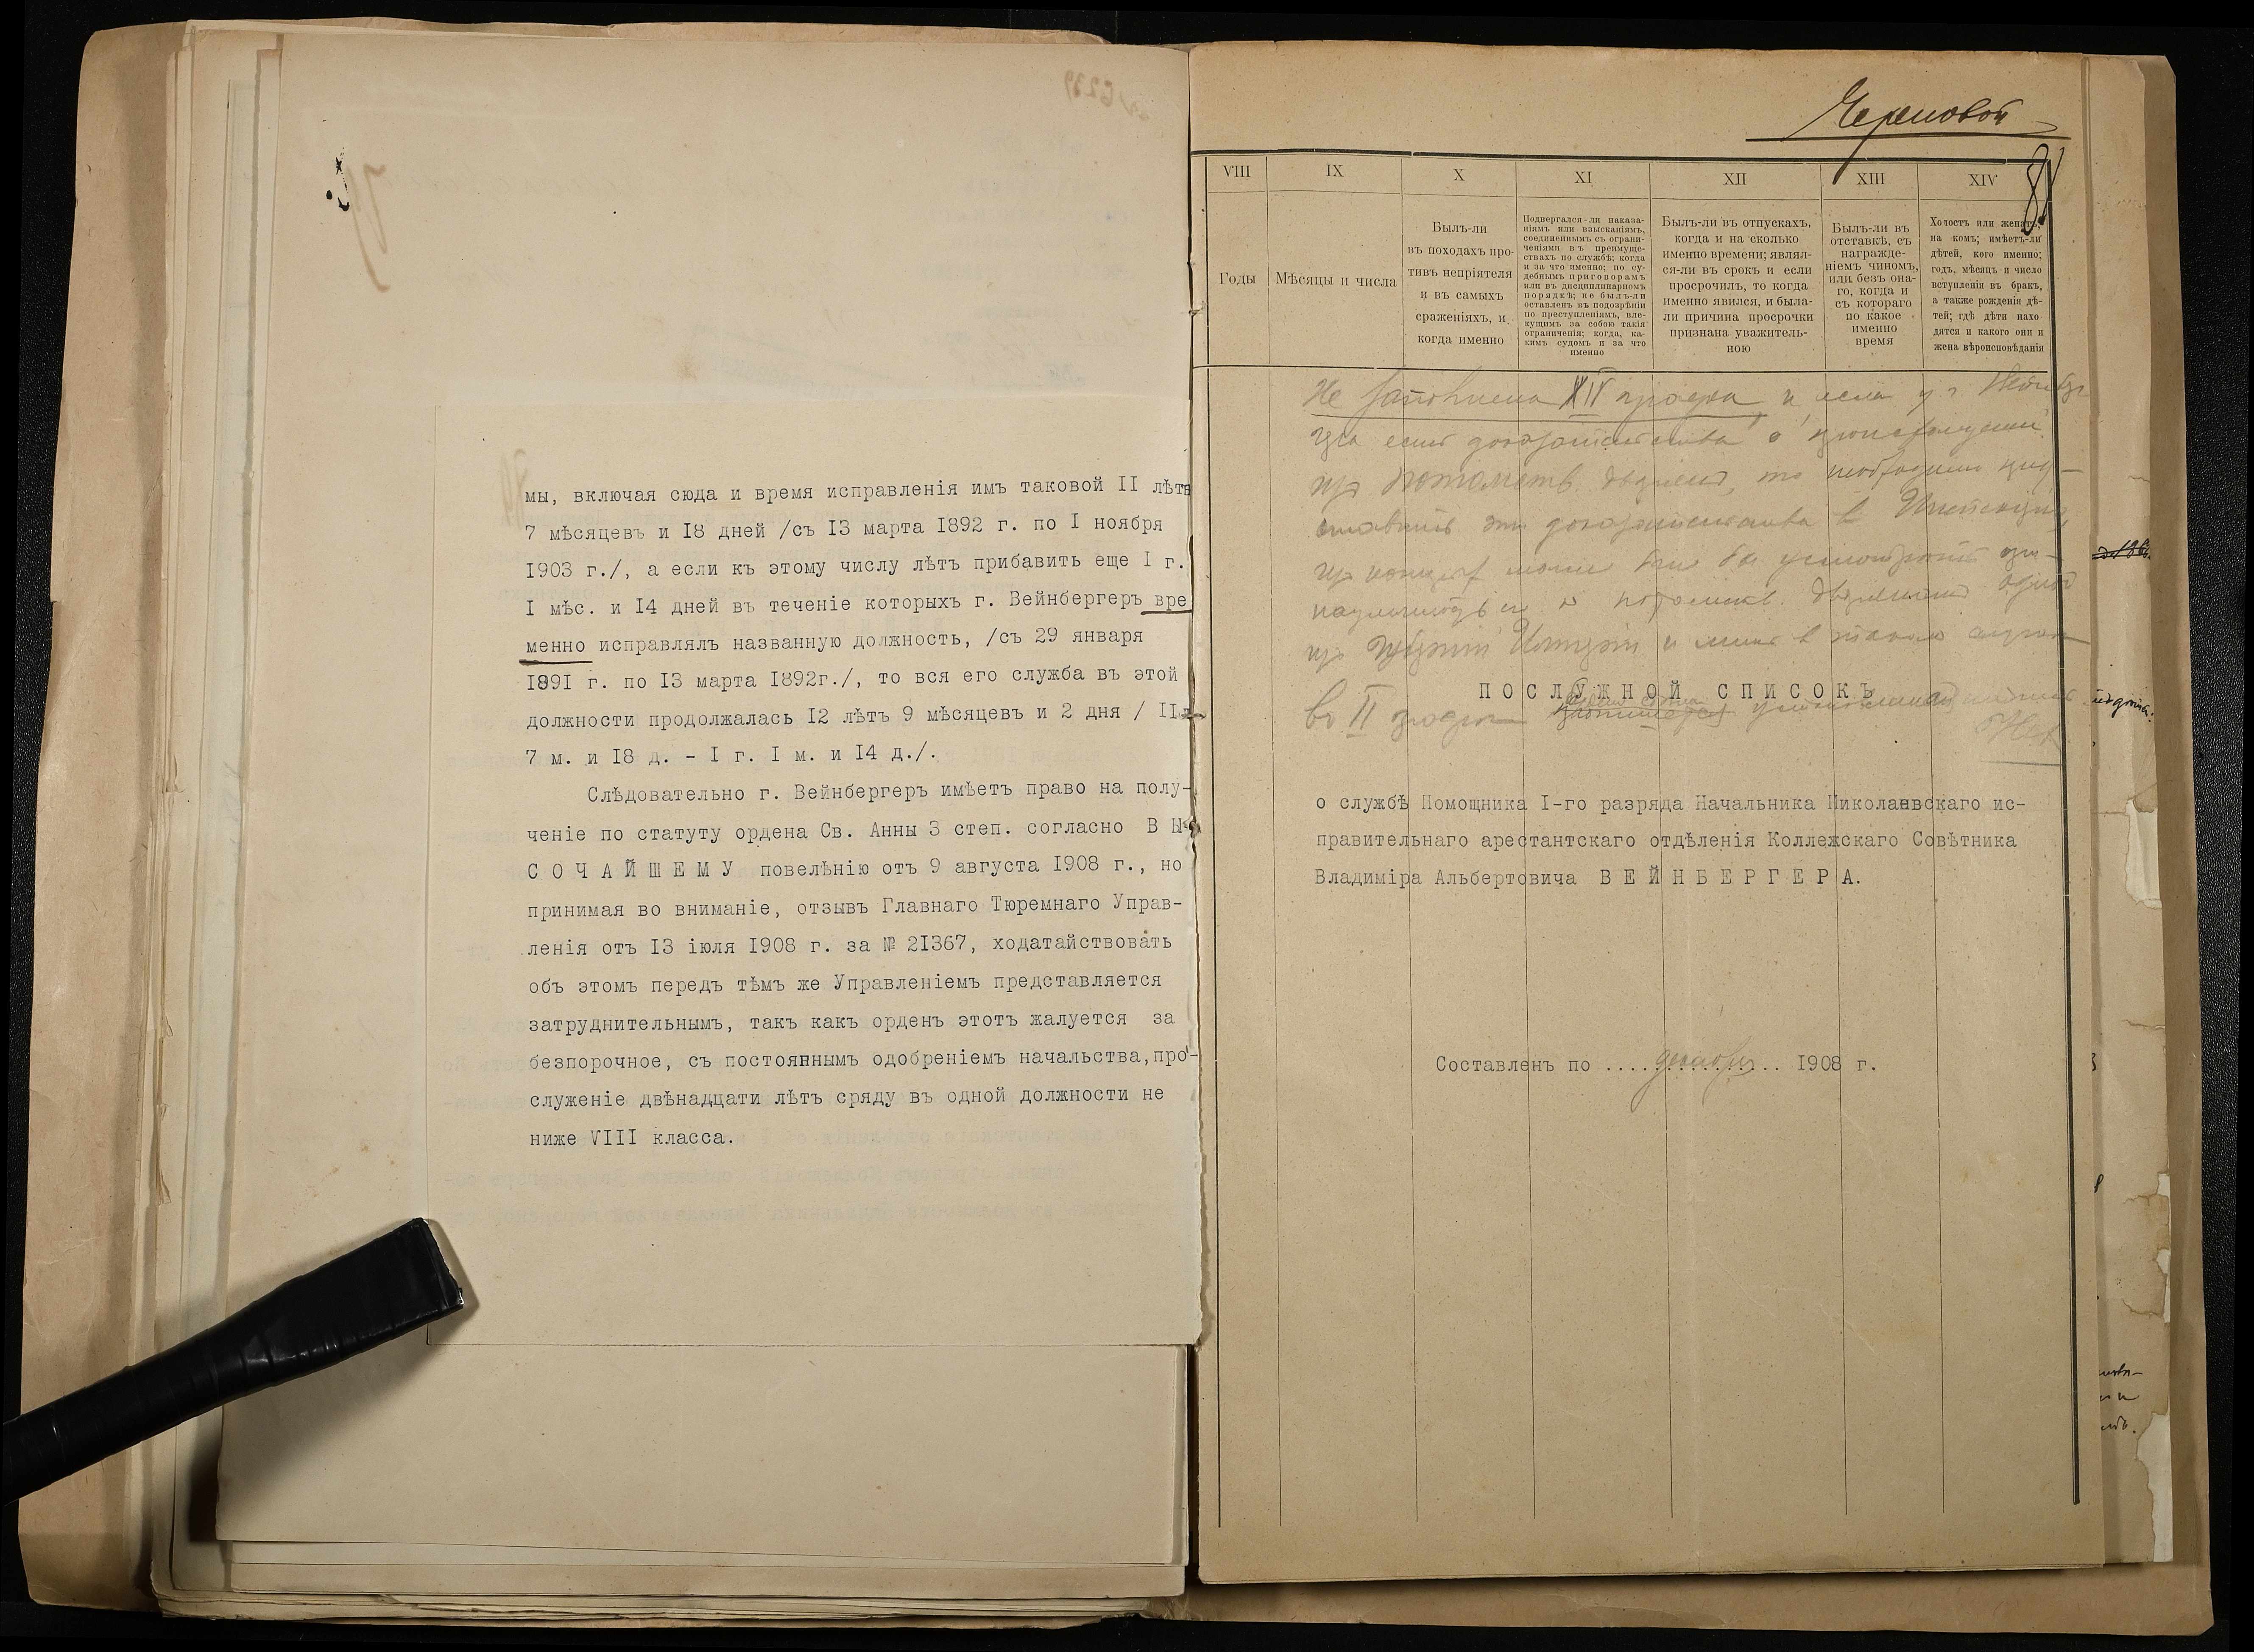 мы, включая сюда и время исправленія имъ таковой II лѣтъ
7 мѣсяцевъ и I8 дней /съ I3 марта I892 г. по I ноября
I903 г./, а если къ этому числу лѣтъ прибавить еще I г.
I мѣс. и I4 дней въ теченіе которыхъ г. Вейнбергеръ вре
менно исправлялъ названную должность, /съ 29 января
I89I г. по I3 марта I892г./, то вся его служба въ этой
должности продолжалась I2 лѣтъ 9 мѣсяцевъ и 2 дня / II л
7 м. и I8 д. - I г. I м. и I4 д./.
Слѣдовательно г. Вейнбергеръ имѣетъ право на полу-
ченіе по статуту ордена Св. Анны 3 степ. согласно В Ы
С О Ч А Й Ш Е М У повелѣнію отъ 9 августа I908 г., но
принимая во вниманіе, отзывъ Главнаго Тюремнаго Управ-
ленія отъ I3 іюля I908 г. за № 2I367, ходатайствовать
объ этомъ передъ тѣмъ же Управленіемъ представляется
затруднительнымъ, такъ какъ орденъ этотъ жалуется за
безпорочное, съ постояннымъ одобреніемъ начальства,про-
служеніе двѣнадцати лѣтъ сряду въ одной должности не
ниже VIII класса.
Черновой
81
VIII
IX
X
XI
XII
XIII
XIV
Годы
Мѣсяцы и числа
Былъ-ли
въ походахъ про-
тивъ непріятеля
и въ самыхъ
сраженіяхъ, и
когда именно
Подвергался-ли наказа-
ніямъ или взысканіямъ,
соединеннымъ съ ограни-
ченіями въ преимуще-
ствахъ по службѣ; когда
и за что именно; по су-
дебнымъ приговорамъ
или въ дисциплинарномъ
порядкѣ; не былъ-ли
оставленъ въ подозрѣніи
по преступленіямъ, вле-
кущимъ за собою такія
ограниченія; когда, ка-
кимъ судомъ и за что
именно
Былъ-ли въ отпускахъ,
когда и на сколько
именно времени; являл-
ся-ли въ срокъ и если
просрочилъ, то когда
именно явился, и была-
ли причина просрочки
признана уважитель-
ною
Былъ-ли въ
отставкѣ, съ
награжде-
ніемъ чиномъ,
или безъ она-
го, когда и
съ котораго
по какое
именно
время
Холостъ или женатъ,
на комъ; имѣетъ-ли
дѣтей, кого именно;
годъ, мѣсяцъ и число
вступленія въ бракъ,
а также рожденія дѣ-
тей; гдѣ дѣти нахо
дятся и какого они и
жена вѣроисповѣданія
Не заполнена XIV графа и если у г.
есть доказательства о происхожденіи
дворянъ, то необходимо пред-
ставить эти доказательства в
въ II графѣ
П О С Л У Ж Н О Й С П И С О К Ъ
о службѣ Помощника I-го разряда Начальника Николаевскаго ис-
правительнаго арестантскаго отдѣленія Коллежскаго Совѣтника
Владиміра Альбертовича В Е Й Н Б Е Р Г Е Р А.
Составленъ по ....декабрь... I908 г.